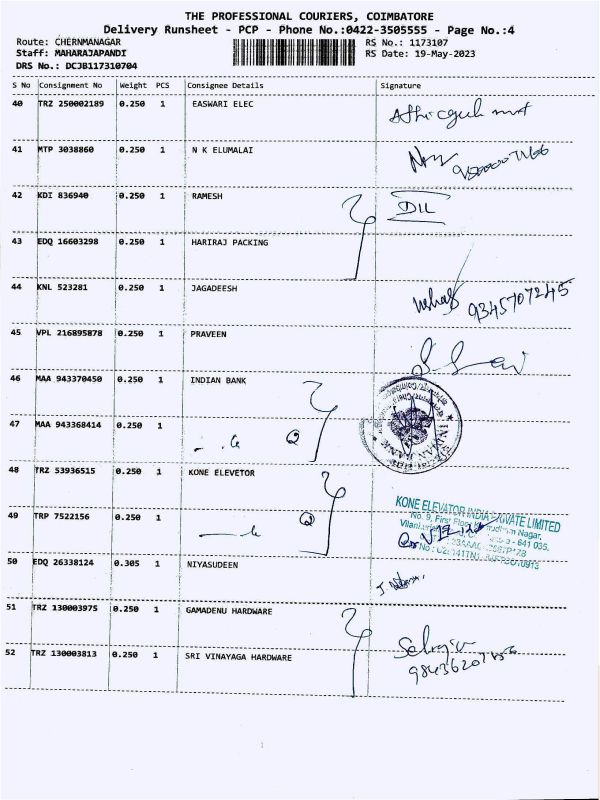 THE PROFESSIONAL COURIERS, COIMBATORE
Delivery Runsheet - PCP - Phone No.:0422-3505555 - Page No.:4
Route: CHERNMANAGAR RS No.: 1173107
Staff: MAHARAJAPANDI RS Date: 19-May-2023
DRS No.: DCJB117310704
S No Consignment No Weight PCS Consignee Details Signature
40 TRZ 250002189 0.250 1 EASWARI ELEC
41 MTP 3038860 0.250 1 N K ELUMALAI
42 KDI 836940 0.250 1 RAMESH
43 EDQ 16603298 0.250 1 HARIRAJ PACKING
44 KNL 523281 0.250 1 JAGADEESH 9345707245
45 VPL 216895878 0.250 1 PRAVEEN
46 MAA 943370450 0.250 1 INDIAN BANK
47 MAA 943368414 0.250 1
INDIAN BANK
48 TRZ 53936515 0.250 1 KONE ELEVETOR
KONE ELEVATOR INDIA PRIVATE LIMITED
No. 9, First Floor Nagar,
641 035.
49 TRP 7522156 0.250 1
50 EDQ 26338124 0.305 1 NIYASUDEEN
51 TRZ 130003975 0.250 1 GAMADENU HARDWARE
52 TRZ 130003813 0.250 1 SRI VINAYAGA HARDWARE